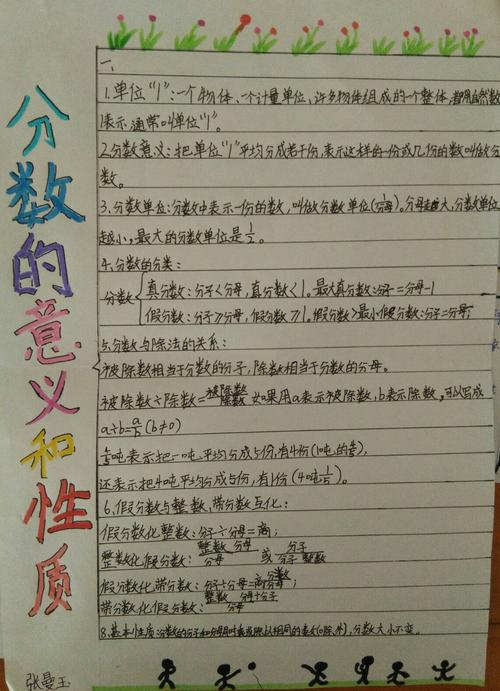 分数的意义和性质
一、
1.单位“1”:一个物体、一个计量单位、许多物体组成的一个整体,都用自然数
1表示通常叫单位“1”。
2.分数意义:把单位“1”平均分成若干份,表示这样的一份或几份的数叫做分
数。
3.分数单位:分数中表示一份的数,叫做分数单位(1/分母)。分母越大,分数单位
越小,最大的分数单位是1/2。
4.分数的分类:
分数{真分数:分子<分母,真分数<1。最大真分数:分子=分母-1
假分数:分子≥分母,假分数≥1。假分数>最小假分数:分子=分母;
5.分数与除法的关系:
被除数相当于分数的分子,除数相当于分数的分母。
被除数÷除数=被除数/除数 如果用a表示被除数,b表示除数,可以写成
a÷b=a/b(b≠0)
4/5吨表示把一吨平均分成5份,有4份(1吨的4/5),
还表示把4吨平均分成5份,有1份(4吨1/5)。
6.假分数与整数、带分数互化:
假分数化整数:分子÷分母=商;
整数化假分数: 整数 分母/分母 或 分子/分子 整数
假分数化带分数:分子÷分母=商分数/分母;
带分数化假分数: 整数 分母+分子/分母
8.基本性质:分数的分子和分母同时乘或除以相同的数(0除外),分数大小不变。
张曼玉